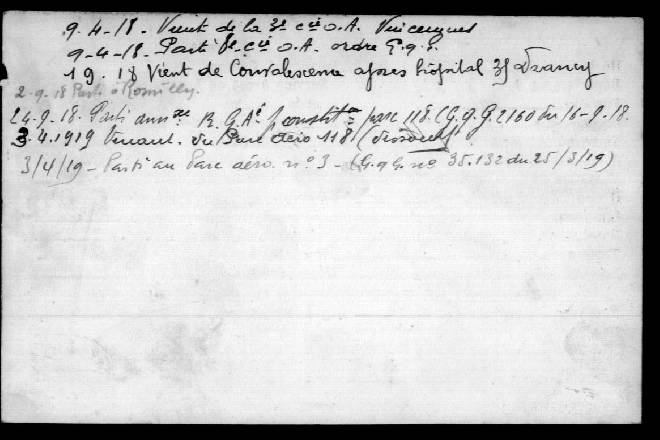 9-4-18. Vient de la 3e cie O.A. Vincennes
9-4-18. Parti cie O.A. ordre G.q.G.
19. 18 Vient de Convalescence après hôpital 38 Drancy
2-9-18 Parti à Romilly.
24-9-18. Parti R.G.Aé constit parc 118. (G.q.G. 2160 du 16-9-18.
3.4.1919 Venant du Parc Aéro 118 (dissous)
3/4/19 - Parti au Parc aéro. no 3 - (G.q.G. no 35.132 du 25/3/19)